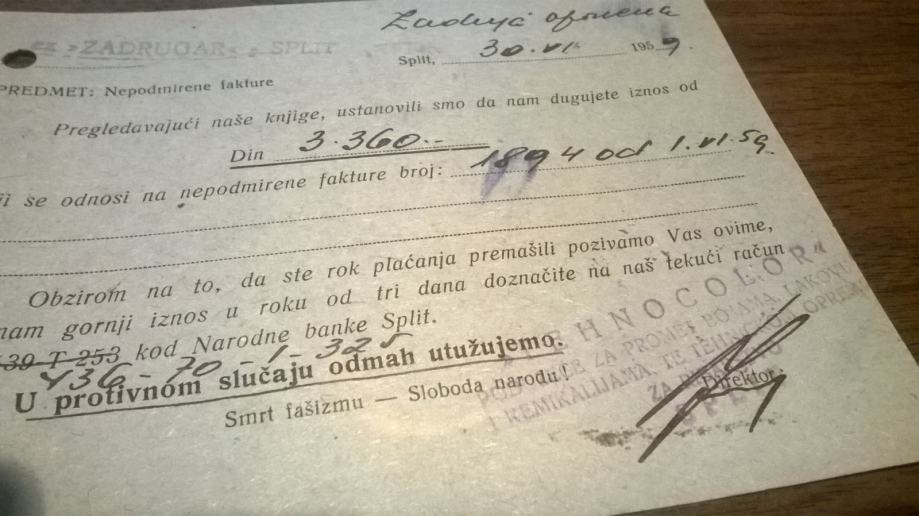 Zadnja opomena
»ZADRUGAR« SPLIT
Split, 30.VI. 1959.
PREDMET: Nepodmirene fakture
Pregledavajući naše knjige, ustanovili smo da nam dugujete iznos od
Din 3.360.-
ji se odnosi na nepodmirene fakture broj: 1894 od 1.VI.59.
Obzirom na to, da ste rok plaćanja premašili pozivamo Vas ovime,
nam gornji iznos u roku od tri dana doznačite na naš tekući račun
39 T 253 kod Narodne banke Split.
436-70-1-325
U protivnom slučaju odmah utužujemo.
Smrt fašizmu — Sloboda narodu!
Direktor:
TEHNOCOLOR"
ZA PROMET BOJAMA, LAKOVI
I KEMIKALIJAMA, TE
SPLIT